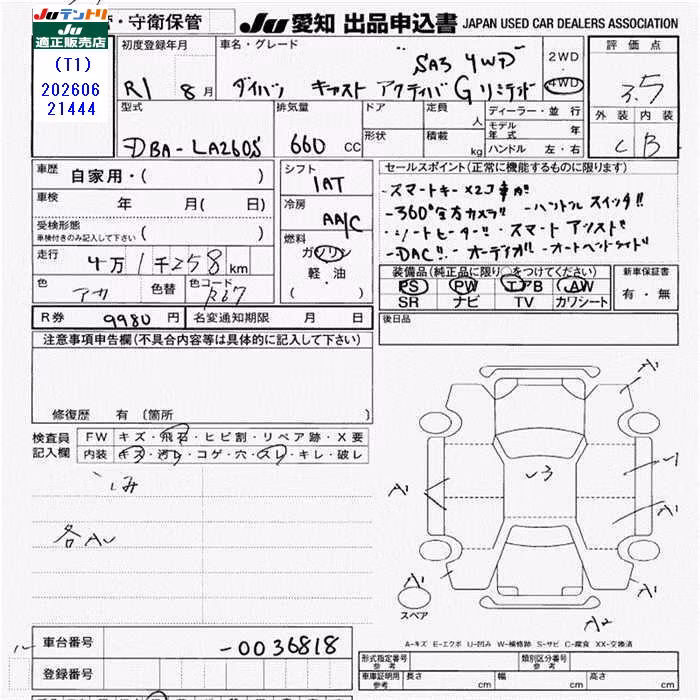 Juテントリ 適正販売店
・守衛保管
JU 愛知 出品申込書 JAPAN USED CAR DEALERS ASSOCIATION
(T1)
202606
21444
初度登録年月
R1 8月
車名・グレード
"SA3 4WD"
ダイハツ キャスト アクティバ G リミテッド
2WD
・
4WD
評価点
3.5
外装 内装
C B
型式
DBA-LA260S
排気量
660 CC
ドア
形状
定員 人
積載 kg
ディーラー・並行
モデル年式 年
ハンドル 左・右
車歴 自家用・( )
車検 年 月( 日)
受検形態
車検付きのみ記入して下さい ( )
走行 4万1千258km
色 アカ 色替 色コード R67
シフト
IAT
冷房
AA/C
燃料
ガソリン
軽・油
( )
セールスポイント(正常に機能するものに限ります)
・スマートキー×2コ
・360°全方カメラ!! ・ハンドルスイッチ!!
・シートヒーター!! ・スマートアシスト
・DAC!! ・オーディオ!! ・オートヘッドライト
装備品(純正品に限り○をつけてください)
PS PW エアB AW
SR ナビ TV カワシート
新車保証書
有・無
R券 9980円 名変通知期限 月 日
後日品
注意事項申告欄(不具合内容等は具体的に記入して下さい)
修復歴 有 〔箇所 〕
検査員記入欄
FW キズ・飛石・ヒビ割・リペア跡・X要
内装 キズ・汚レ・コゲ・穴・スレ・キレ・破レ
シミ
各AU
A1
A1
A1
A1
A1
A2
スペア
A-キズ E-エクボ U-凹み W-補修跡 S-サビ C-腐食 XX-交換済
車台番号 -0036818
登録番号
形式指定番号 参考
類別区分番号 参考
車庫証明用 参考 長さ cm 幅 cm 高さ cm